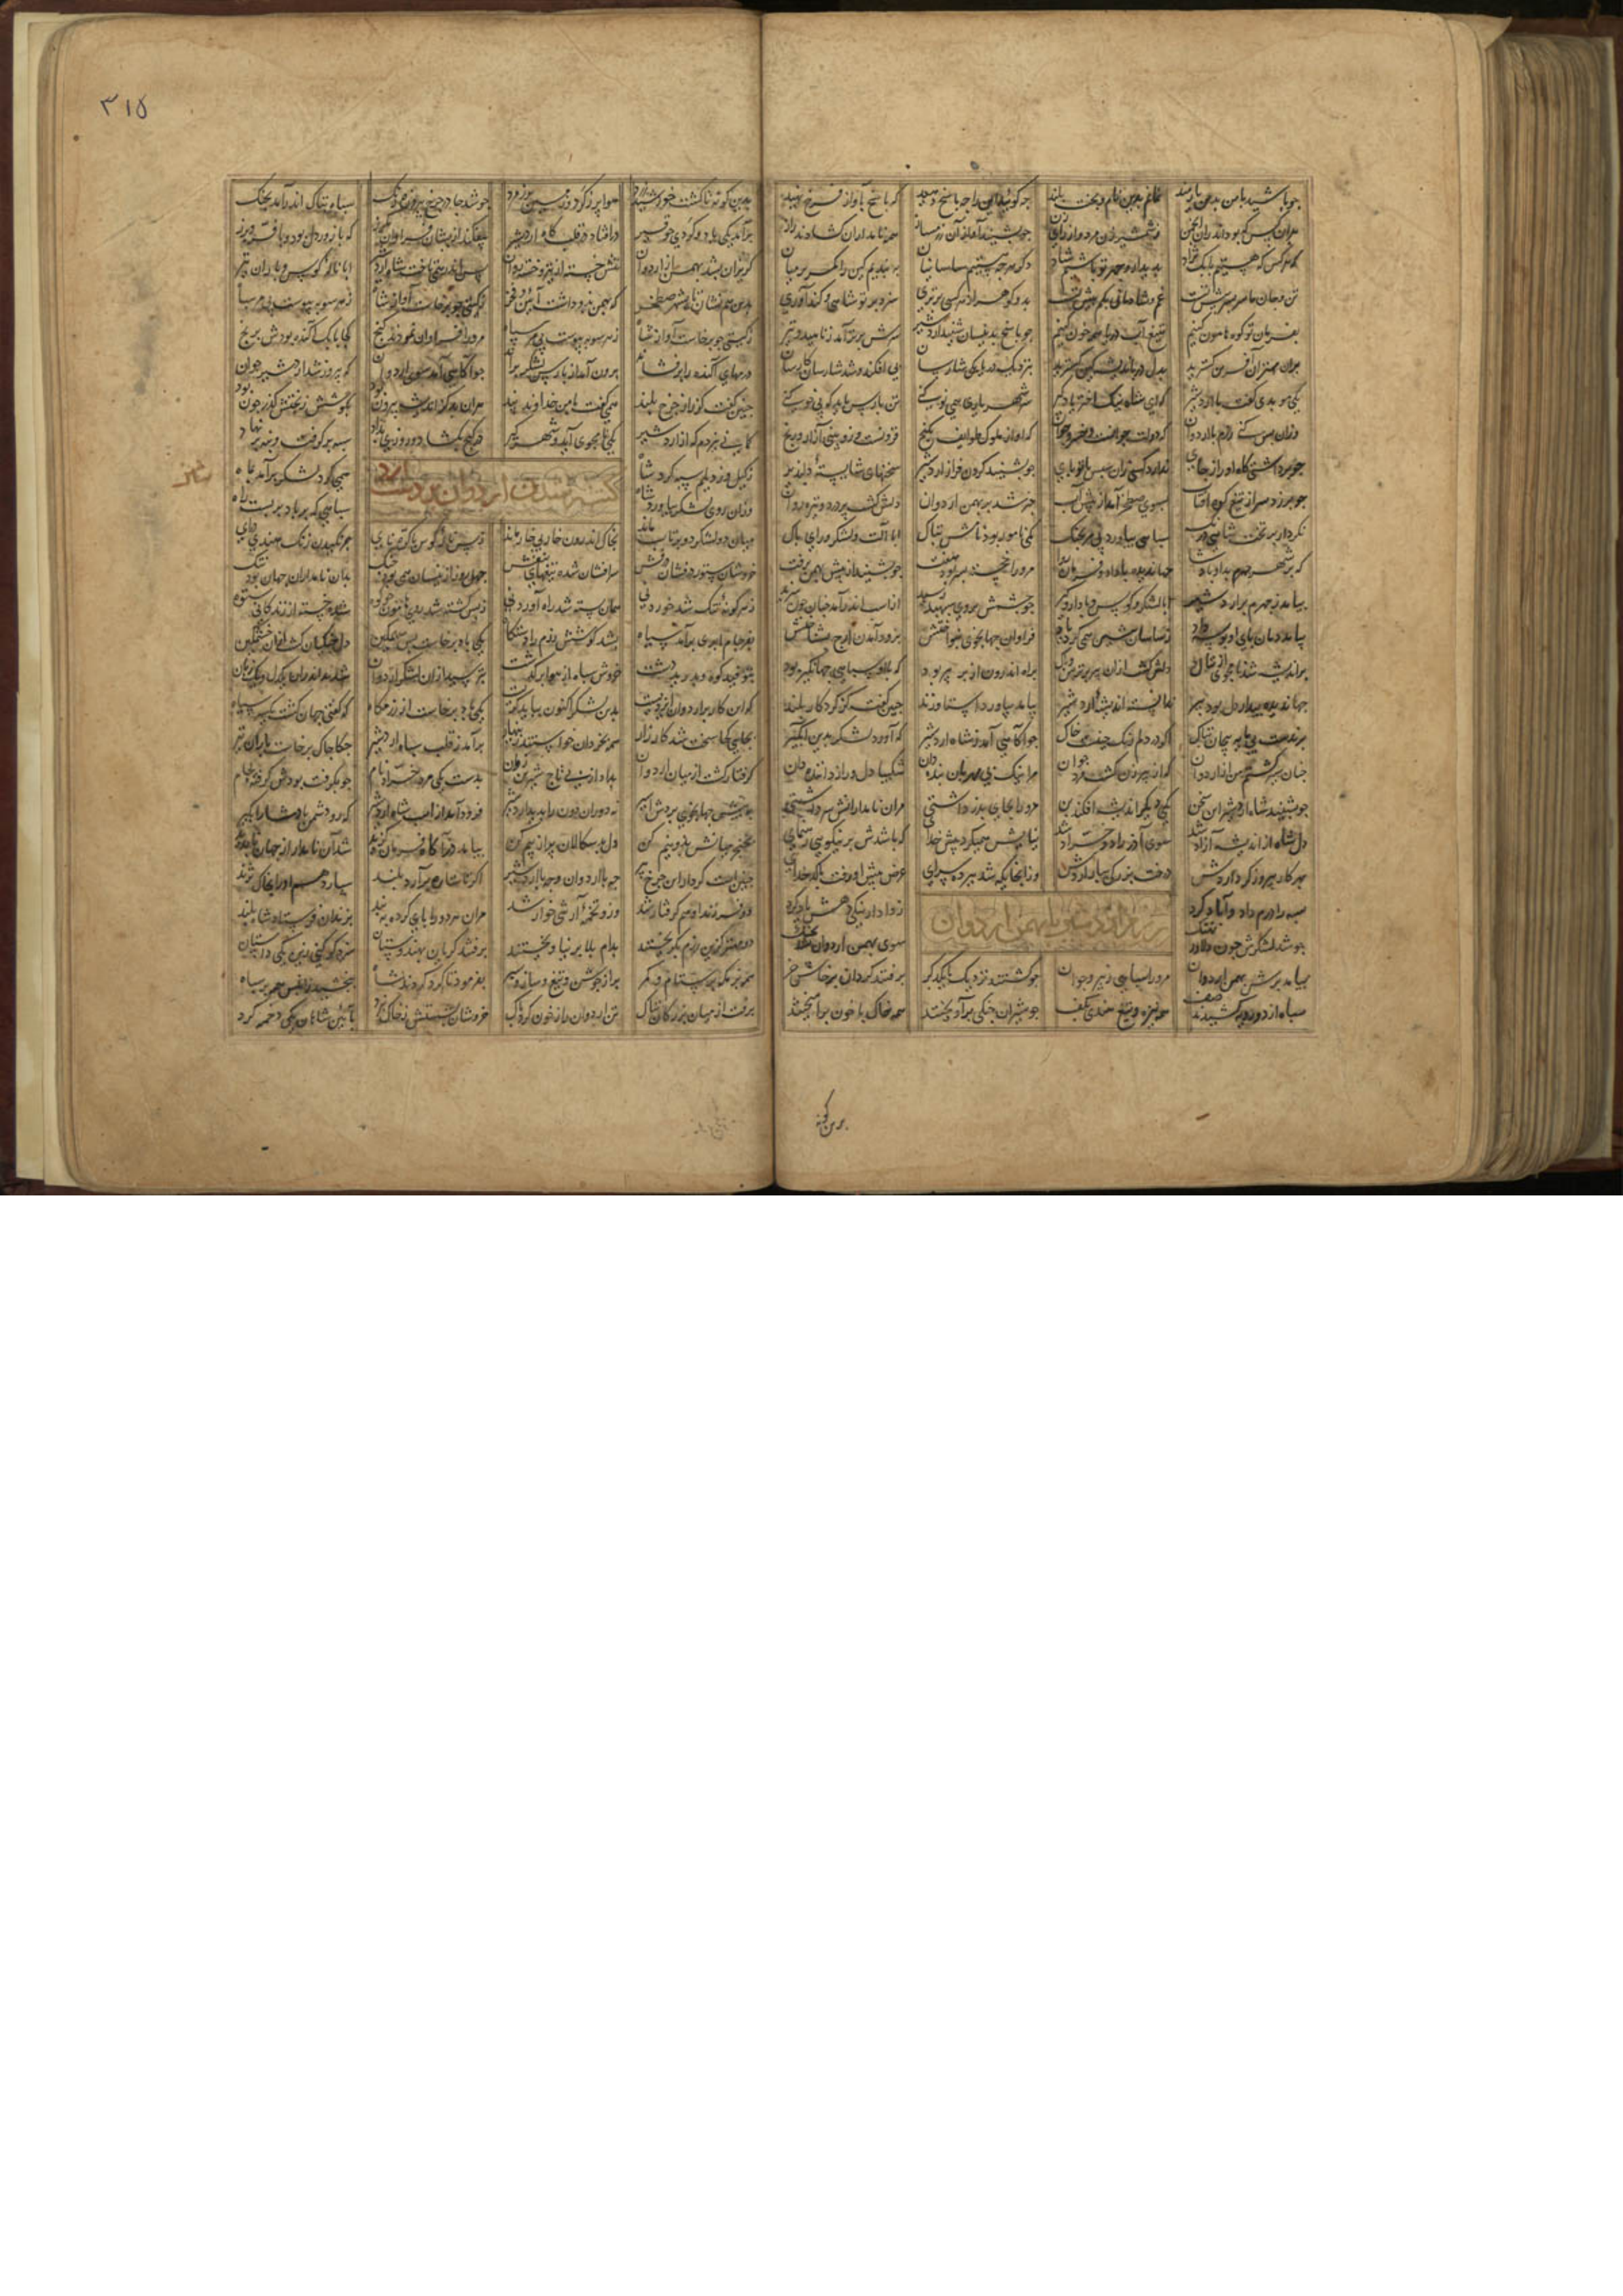 چو باشید با من بدین یارمند نمانم بدین نام و تخت بلند چه گوئید این را چه پاسخ دهید که پاسخ بآواز فرخ نهید
هران کس که بود اندران انجمن ز شمشیر زن مرد و از رای زن چو بشنید آواز آن همه نامداران گشادند راز
که هر کس که هستیم بابک نژاد بدیدار و مهر تو باشیم شاد دگر هرچه هستیم ساسانیان ببندیم کین را کمر بر میان
تن و جان ما سربسر پیش تست غم و شادمانی بکم بیش تست بدو گوهر از هر کسی برتری سزد بر تو شاهی و کندآوری
بفرمان تو کوه هامون کنیم بتیغ آب دریا همه خون کنیم چو پاسخ بدیسان شنید اردشیر سرش برتر آمد ز ناهید و تیر
بران مهتران آفرین گسترید بدل در باندیشه کین گسترید بنزدیک دریا یکی شارسان پی افکند و شد شارسان کارسان
یکی موبدی گفت با اردشیر که ای شاه نیک اختر یادگیر سر شهریاری همی نو کنی تن پارس باید که بی خو کنی
وزان پس کنی رزم با اردوان که دولت جوانست و خسرو جوان که او از ملوک طوایف بگنج فزونست و زو بینی آزار و رنج
چو برداشتی گاه او را ز جای ندارد کسی زان سپس با تو پای چو بشنید گردن فراز اردشیر سخنهای شایسته دلپذیر
چو برزد سر از تیغ کوه آفتاب بسوی صطخر آمد از پیش آب خبر شد بر بهمن اردوان دلش گشت پر درد و تیره روان
نکرد او بر تخت شاهی درنگ سپاهی بیاورد بجنگ یکی نامور بود نامش تباک ابا آلت و لشکر و رای پاک
که بر شهر جهرم بد او پادشا جهاندیده با داد و فرمان روا مرورا خجسته پسر بود هفت چو بشنید از پیش بهمن برفت
بیامد ز جهرم بر اردشیر ابا لشکر و کوس و با دار و گیر چو چشمش بروی سپهبد رسید از اسب اندر آمد چنان چون سزید
بیامد دمان پای او بوسه داد ز ساسانیان بیشی همی کرد یاد فراوان جهانجوی بنواختش بزود آمدن ارج بشناختش
پراندیشه شد نامجوی از تباک دلش گشت ازان پیر پر ترس و باک براه اندرون از بر پیر بود که با او سپاهی جهانگیر بود
جهاندیده بیدار دل بود پیر بدانست اندیشه اردشیر بیامد بیاورد استا و زند چنین گفت کز کردگار بلند
برندست بی مایه جان تباک اگر در دلم خاک چو آگاهی آمد ز شاه اردشیر که آورد لشکر بدین آبگیر
چنان سیر گشتم من از اردوان که از پیر زن گشت مرد جوان مرا نیک پی مهربان بنده دان شکیبا دل و رازداننده دان
چو بشنید شاه اردشیر این سخن یکی دیگر اندیشه افکند بن مرورا بجای پدر داشتی بران نامدارانش سر داشتی
دل شاه از اندیشه آزاد شد سوی آذر راد خراد شد نیایش همیکرد پیش خدای که باشدش بر نیکویی رهنمای
بهر کار پیروزگر داردش درخت بزرگی ببار آردش وزانجایگه شد بپرده سرای عرض پیش او رفت با کدخدای
سپه را درم داد و آباد کرد ز دادار نیکی دهش یاد کرد
چو شد لشکرش چون دلاور نهنگ سوی بهمن اردوان شد بجنگ
رزم اردشیر با بهمن اردوان
بیامد برش بهمن اردوان مرورا سپاهی دلیر و جوان چو گشتند نزدیک با یکدگر برفتند گردان پرخاش خر
سپاه از دو رویه کشیدند صف همه نیزه و تیغ هندی بکف چو شیران جنگی برآویختند همه خاک با خون برآمیختند
برین گونه
۳۱۵
بدین گونه تا گشت خورشید زرد هوا پر ز گرد و زمین پر ز مرد چو شد چادر چرخ پیروزه رنگ سپاه تباک اندر آمد بجنگ
برآمد یکی باد و گردی چو قیر درافتاد در قلبگاه اردشیر بیفکند ازیشان فراوان بگرز که با زور دل بود و با فر و برز
گریزان بشد بهمن اردوان تنش خسته از تیر و خسته روان پس اندر همی تاخت شاه اردشیر ابا ناله کوس و باران تیر
برین هم نشان تا بشهر صطخر که بهمن بدو داشت آیین و فخر ز گیتی چو برخاست آواز شاه ز هر سو بپیوست بی مر سپاه
ز گیتی چو برخاست آواز شاه ز هر سو بپیوست بی مر سپاه مرورا فراوان نمودند گنج کجا بابک آکنده بودش برنج
درمهای آکنده را برفشاند برون آمد از پارس لشکر براند چو آگاهی آمد سوی اردوان که پیروز شد اردشیر جوان
چنین گفت کز راز چرخ بلند همی گفت با من خداوند پند هران بد کز اندیشه بیرون بود بکوشش ز بختش گذر چون بود
گمانی نبردم که از اردشیر یکی نامجوی آید و شهرگیر در گنج بگشاد و روزی بداد سپه برگرفت و بنه برنهاد
ز گیل و ز دیلم سپه کرد شاه همی گرد لشکر برآمد بماه
وزان روی لشکر بیاورد شاه سپاهی که بر باد بربست راه
کشته شدن اردوان بر دست اردشیر
میان دو لشکر دو پرتاب ماند بخاک اندرون ماند ز بس ناله کوس با کرنای جرنگیدن زنگ و هندی درای
خروشان سپاه و درفشان درفش سرافشان شده تیغهای بنفش چهل روز ازینسان همی بود جنگ بدان نامداران جهان بود تنگ
ز هر گونه تنگ شد خوردنی همان بسته شد راه آوردنی ز بس کشته شد روی هامون چو کوه شده خسته از زندگانی ستوه
بفرجام ابری برآمد سیاه بشد کوشش و رزم را دستگاه یکی باد برخاست بس سهمگین دل جنگیان گشت ازان خشمگین
بتوفید کوه و بدرید دشت خروش سپاه از هوا برگذشت بترسید ازان لشکر اردوان شدند اندران یکدل و یکزبان
که این کار بر اردوان ایزدیست بدین لشکر اکنون بباید گریست یکی باد برخاست از رزمگاه که گفتی جهان گشت یکسر سیاه
بجایی کجا سخت شد کارزار همه بخردان خواستند زینهار برآمد ز قلب سپاه اردشیر چکاچاک برخاست باران تیر
گرفتار گشت از میان اردوان بداد از پی تاج شیرین روان بدست یکی مرد خراد نام چو بگرفت بردش گرفته لگام
به پیش جهانجوی بردش اسیر ز دور اردوان را بدید اردشیر فرود آمد از اسب شاه که رو دشمن پادشا را بگیر
بخنجر میانش بدو نیم کن دل بدسگالان پر از بیم کن بیامد دژآگاه و فرمان گزید شد آن نامدار از جهان ناپدید
چنین است کردار این چرخ پیر چه با اردوان و چه با اردشیر اگر تا ستاره برآرد بلند سپارد هم او را بخاک نژند
دو فرزند او هم گرفتار شد وزو تخمه آرشی خوار شد مران هر دو را پای کرده ببند بزندان فرستاد شاه بلند
دو مهتر گزین رزم بگریختند بدام بلا بر نیاویختند برفتند گریان بهندوستان سزد گر کنی زین یکی داستان
همه رزمگه پر ستام و کمر پر از جوشن و تیغ و سیم بفرمود تا گرد کردند شاه ببخشید زان پس همه بر سپاه
برفت از میان بزرگان تباک تن اردوان را ز خون کرد پاک خروشان بشستش ز خاک نبرد بآئین شاهان یکی دخمه کرد